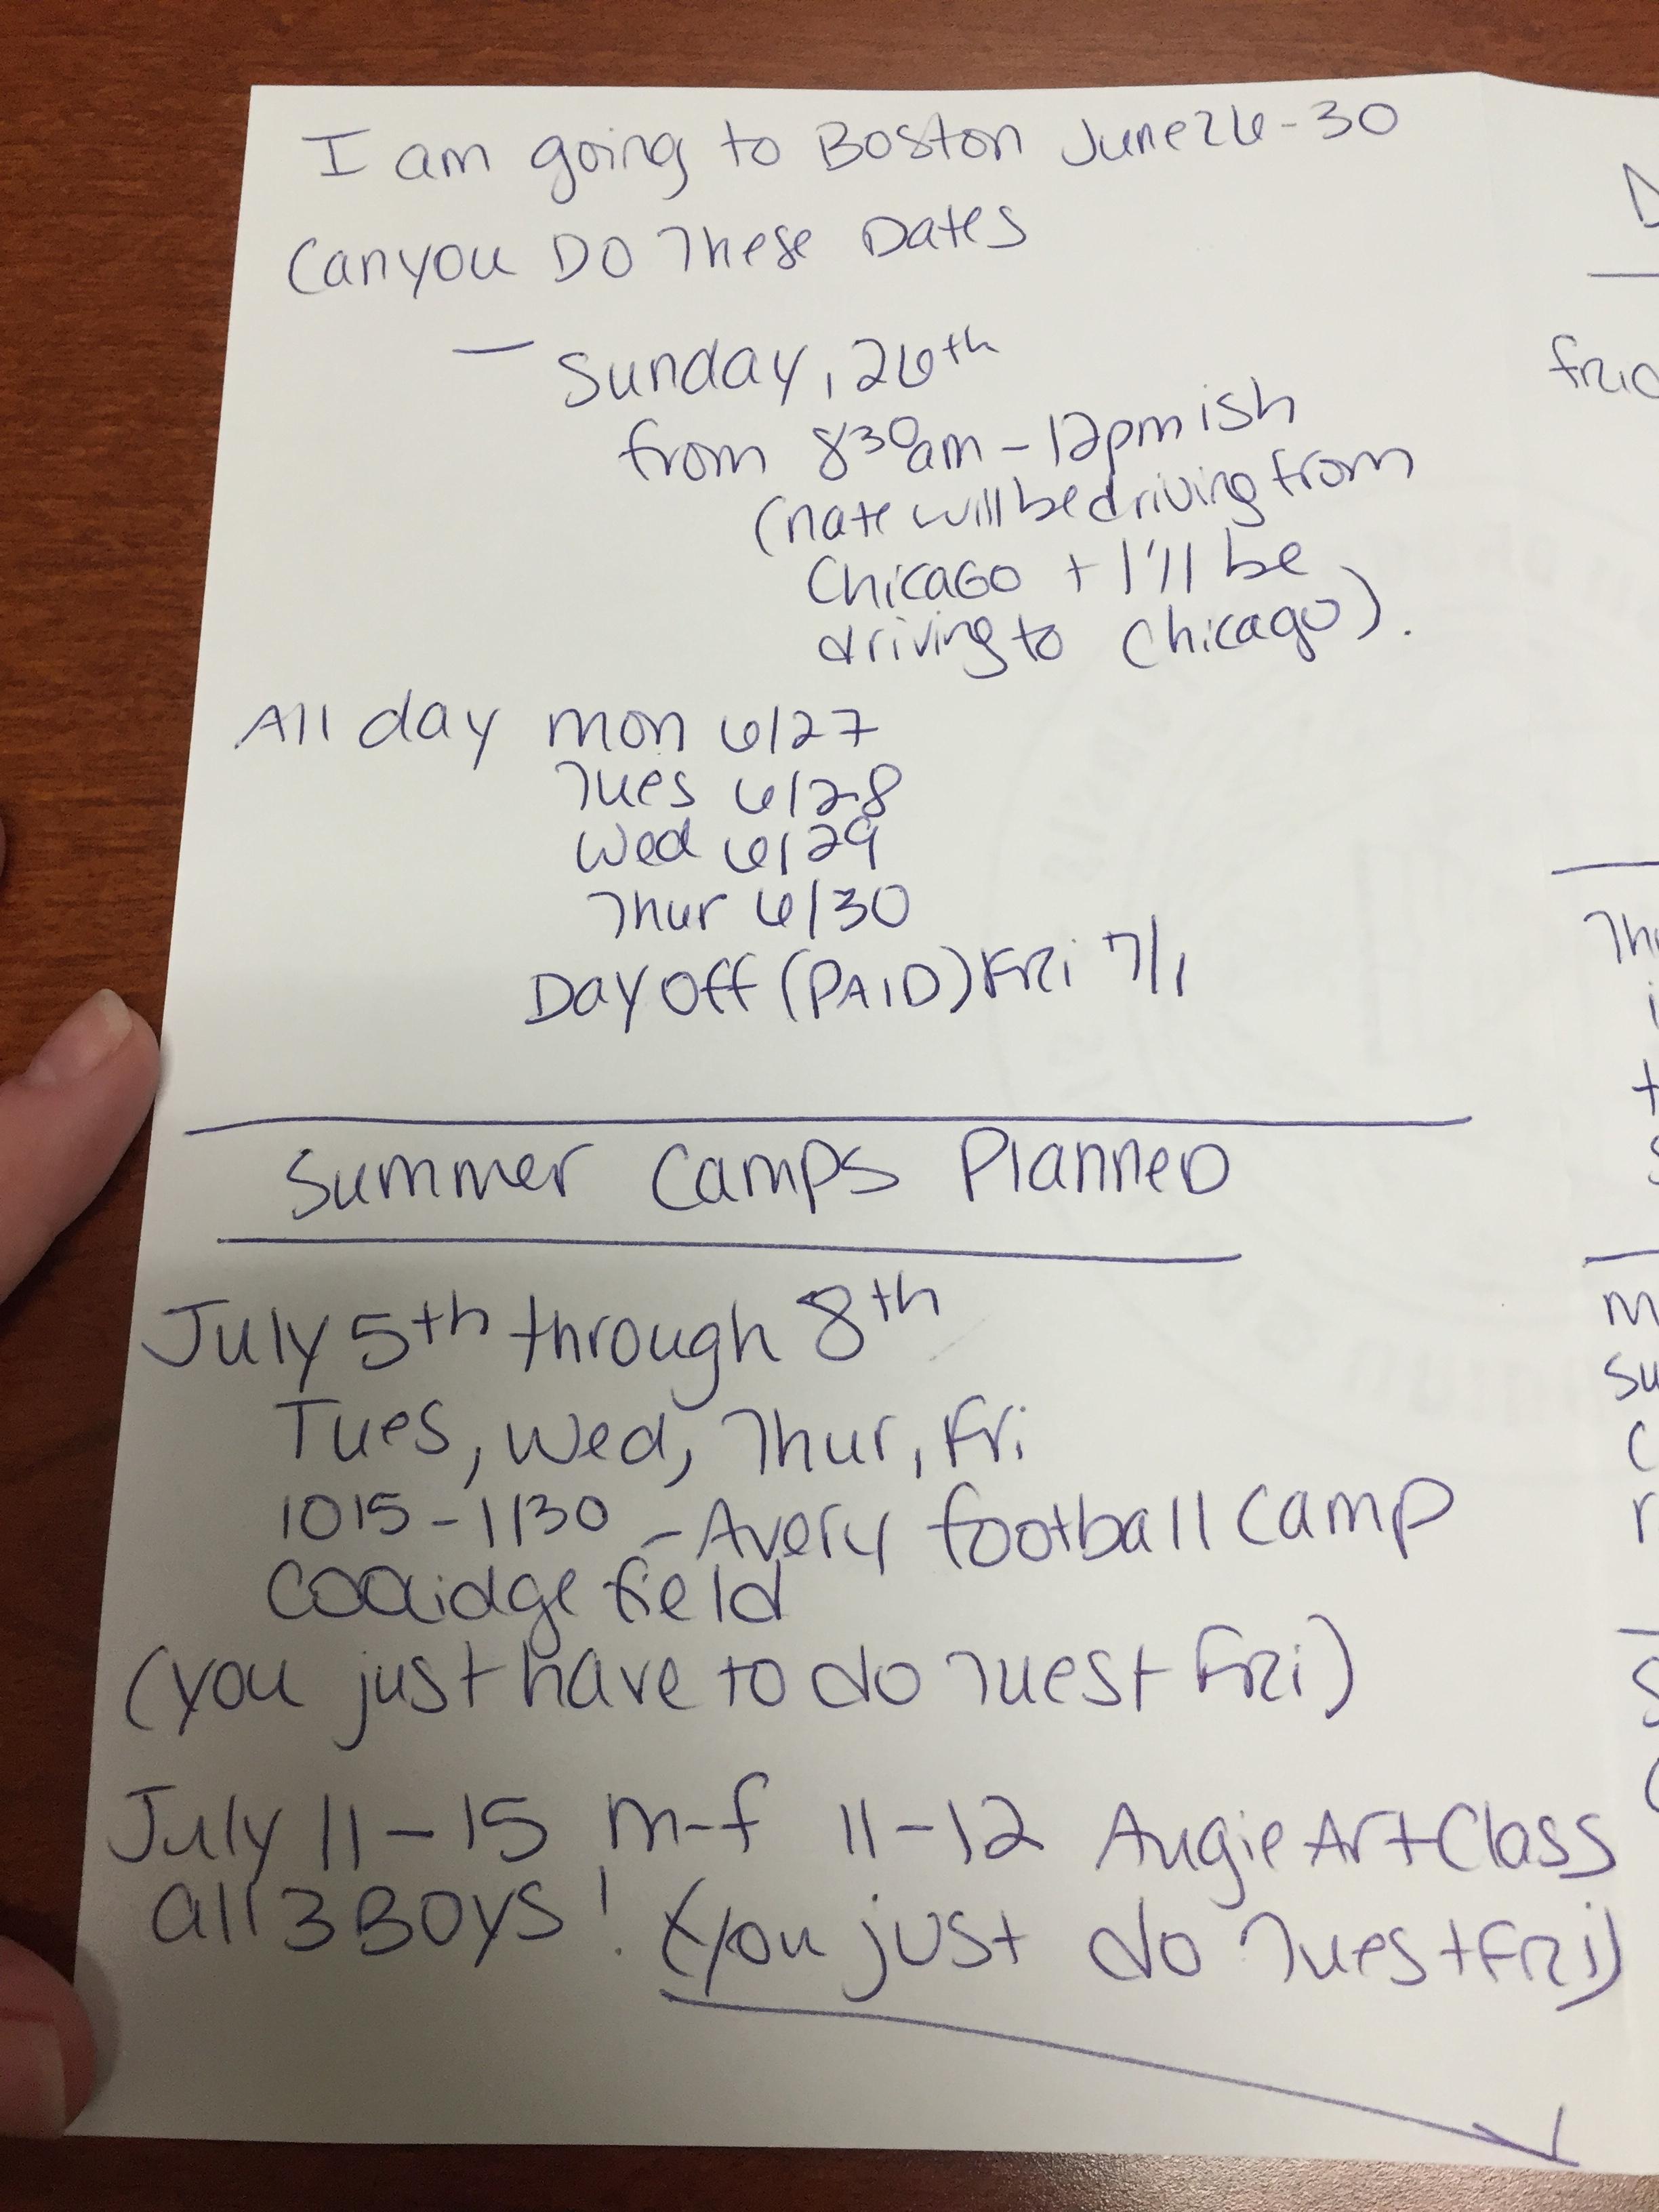 I am going to Boston June 26-30
Can you Do These Dates
— Sunday, 26th
from 830am - 12pmish
(nate will be driving from
Chicago + I'll be
driving to Chicago).
All day mon 6/27
Tues 6/28
Wed 6/29
Thur 6/30
Day off (PAID) Fri 7/1
Summer Camps Planned
July 5th through 8th
Tues, Wed, Thur, Fri
1015 - 1130 - Avery football camp
Cooidge field
(you just have to do Tues + Fri)
July 11 - 15 m-f 11-12 Augie Art Class
all 3 Boys! (you just do Tues + Fri)